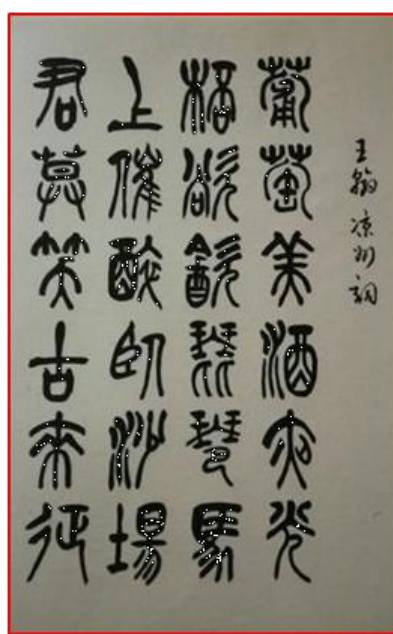 王翰凉州詞
葡萄美酒夜光
桮欲飲琵琶馬
上催醉臥沙場
君莫笑古來征